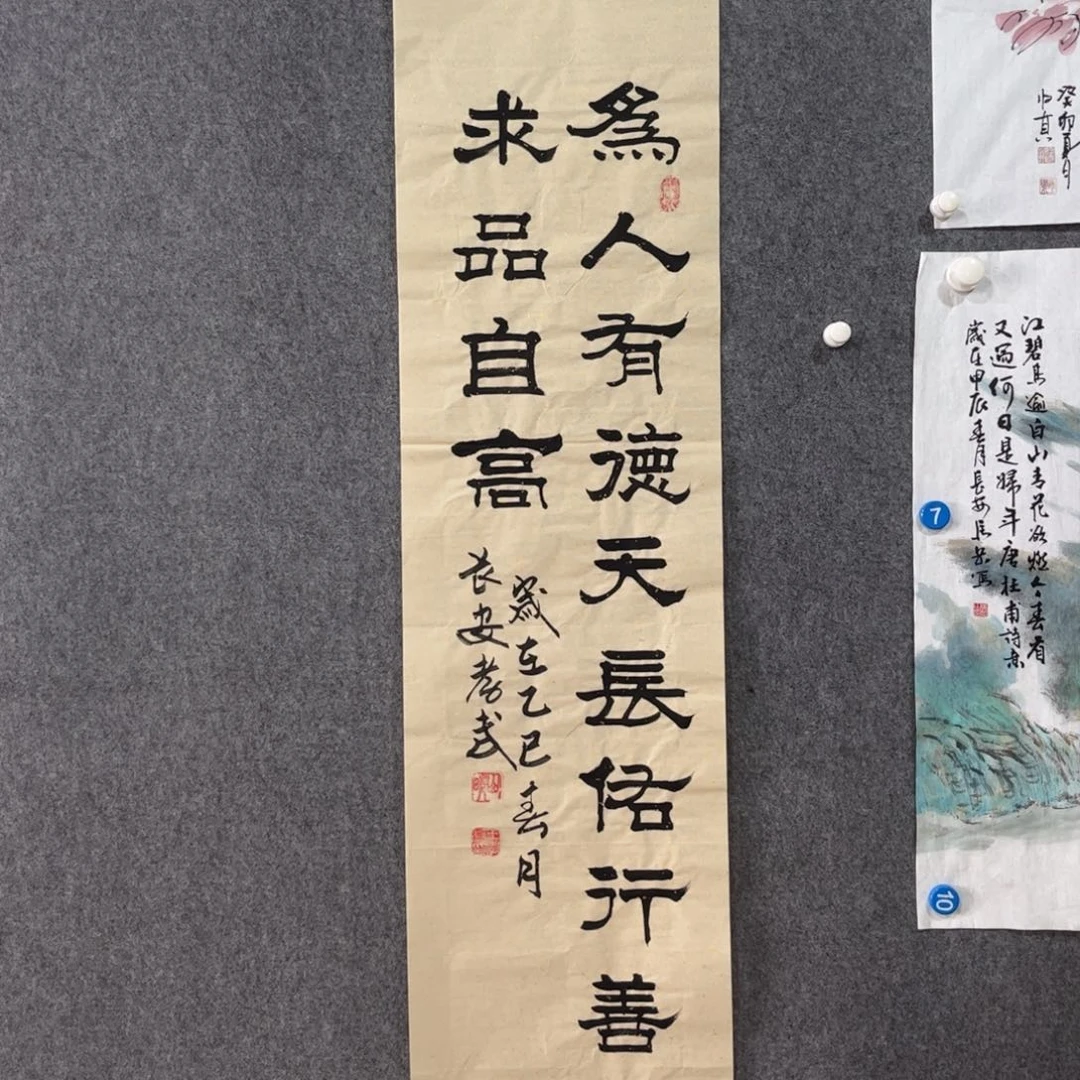 為人有德天長佑行善
求品自高
歲在乙巳春月
長安孝武
癸卯夏月
江碧鳥逾白山青花欲燃今春看
又過何日是歸年唐杜甫詩意
歲在甲辰春月長安
7
10